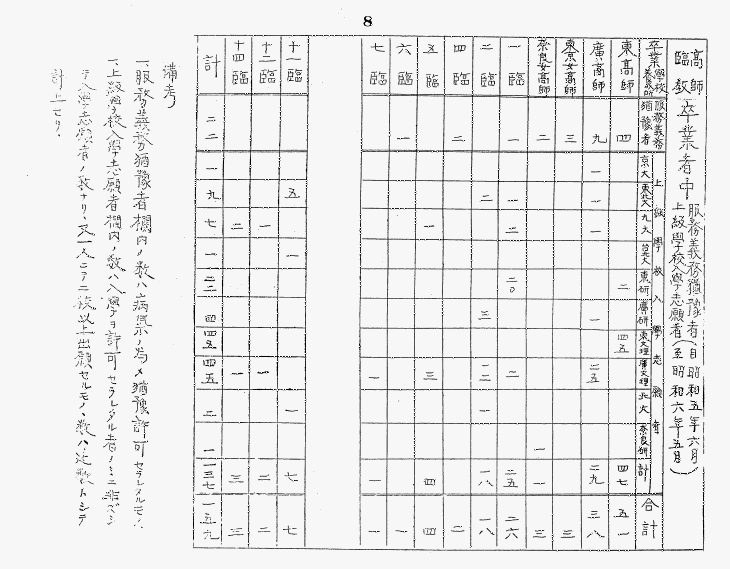 8
高師
臨教
卒業者中
服務義務猶豫者
上級學校入學志願者
(自昭和五年六月
至昭和六年五月)
卒業學校 服務義務猶豫者 上級學校入學志願者 京大 東北大 九大 台北大 東研 廣研 東文理 廣文理 北大 奈良研 計 合計
東高師 四 二 四五 四七 五一
廣高師 九 一 一 一 一 二五 二九 三八
東京女高師 三 三
奈良女高師 二 一 一 三
一臨 一 一 二 二〇 二 二五 二六
二臨 二 三 一二 一 一八 一八
四臨 二 二
五臨 一 三 四 四
六臨 一 一
七臨 一 一 一
十一臨 五 一 一 七 七
十二臨 一 一 二 二
十四臨 二 一 三 三
計 二二 一 九 七 一 二二 四 四五 四五 二 一 一三七 一五九
備考
一、服務義務猶豫者欄內ノ數ハ病氣ノ為メ猶豫許可セラレタルモノ、
一、上級學校入學志願者欄內ノ數ハ入學ヲ許可セラレタル者ノミニ非ズシ
テ入學志願者ノ數ナリ、又一人ニテ二校以上出願セルモノノ數ハ、比數トシテ
計上セリ、